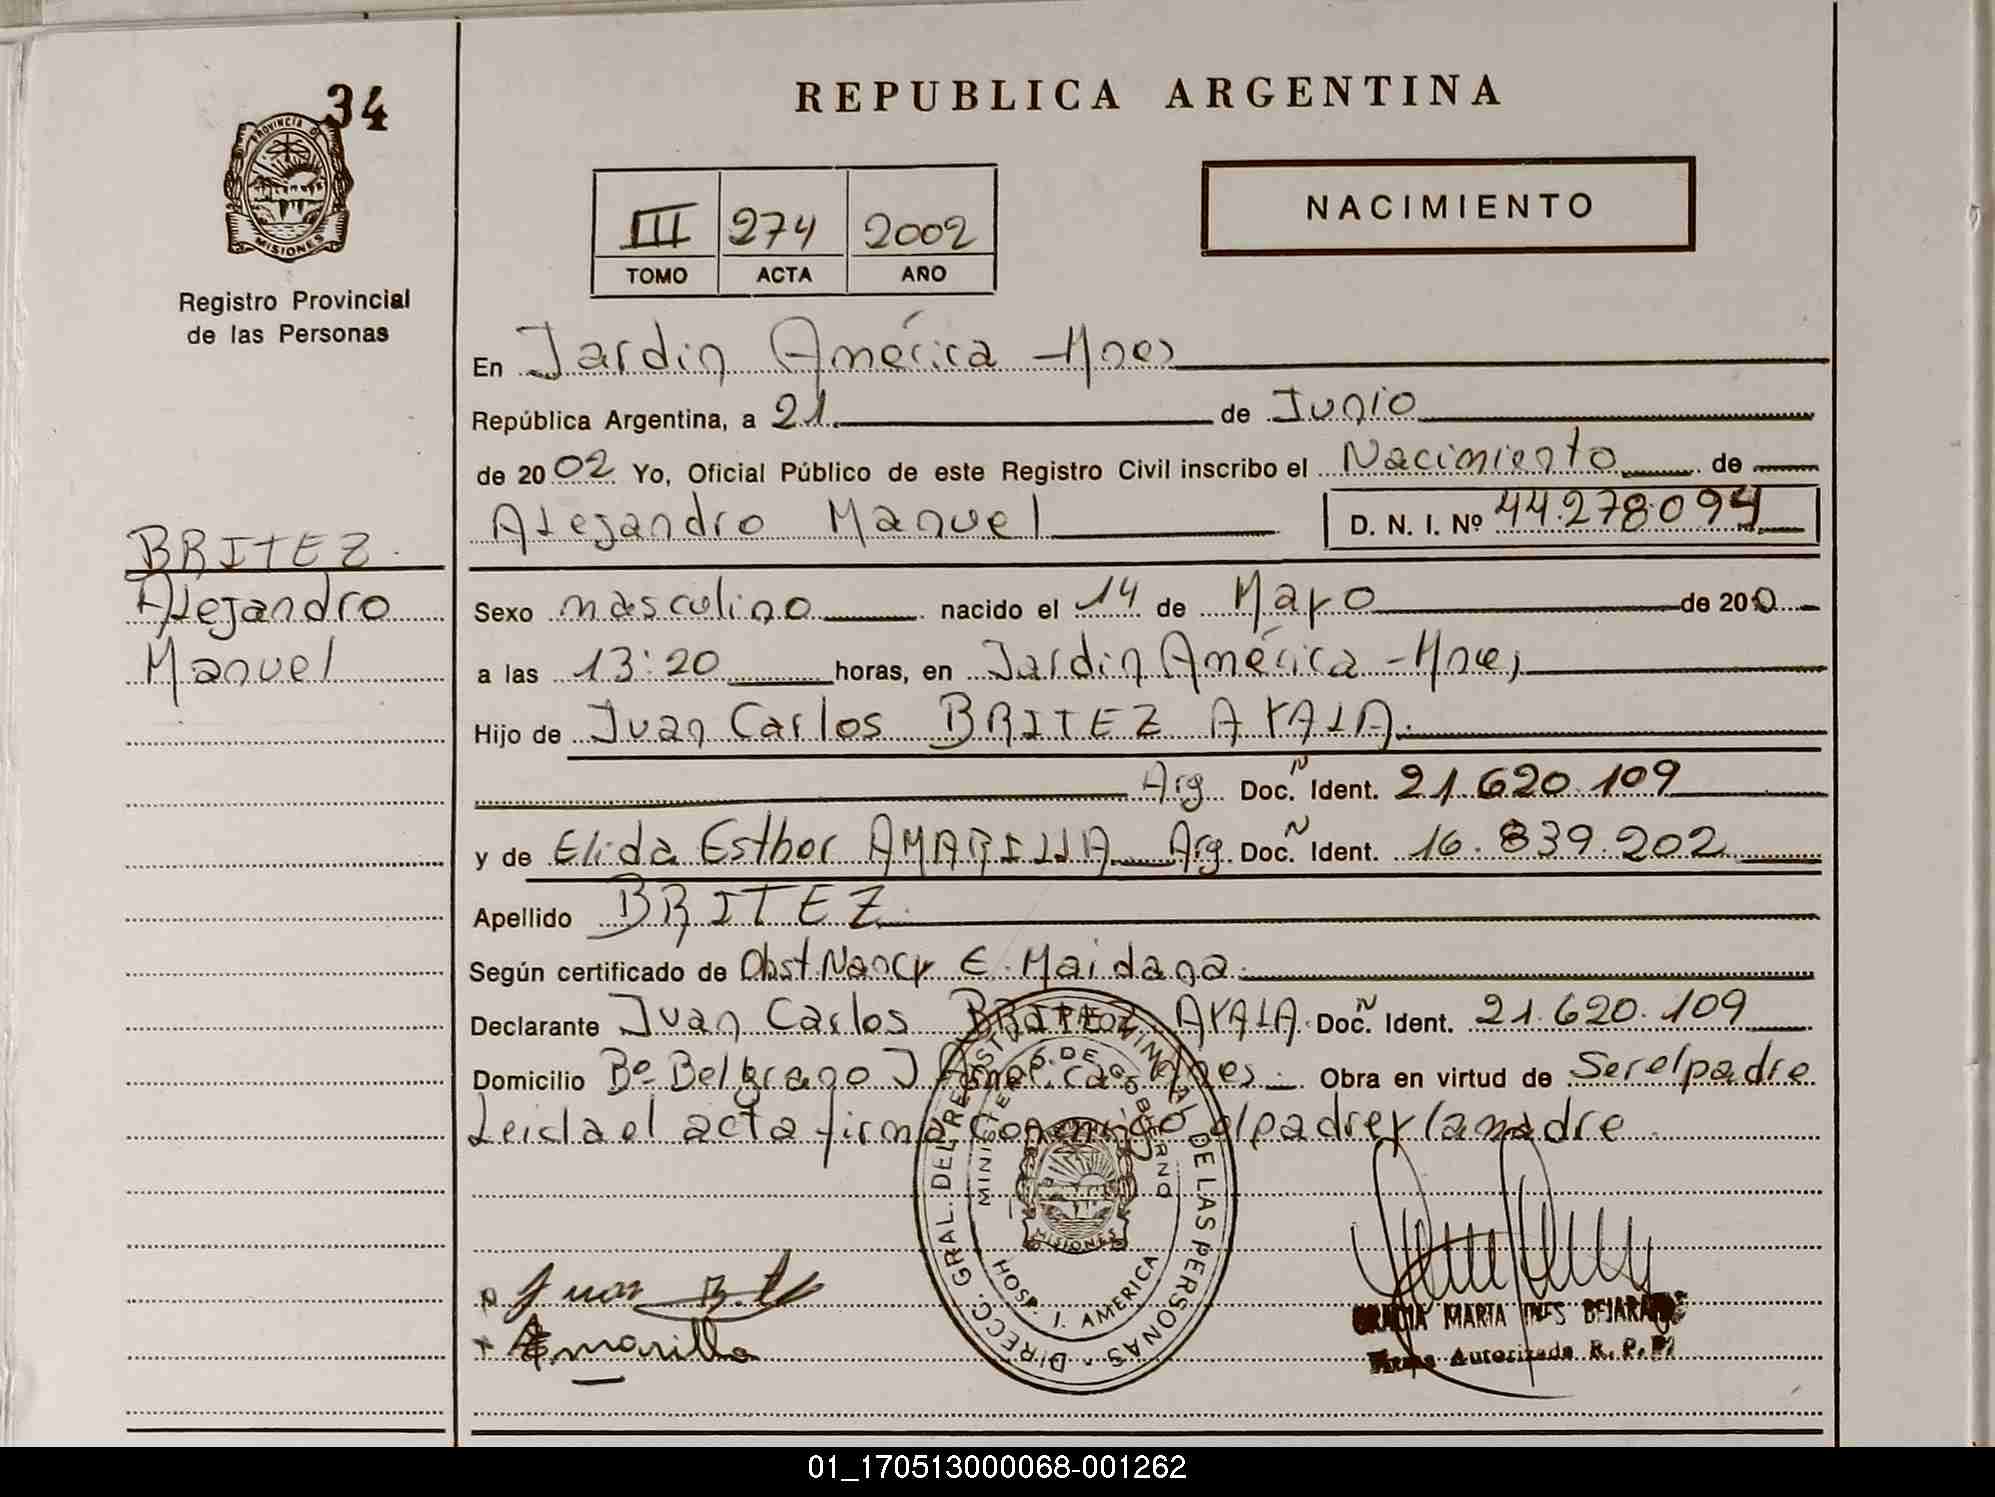 34
PROVINCIA DE
MISIONES
Registro Provincial
de las Personas
REPUBLICA ARGENTINA
III 274 2002
TOMO ACTA AÑO
NACIMIENTO
En Jardin América - Mnes
República Argentina, a 21 de Junio
de 2002 Yo, Oficial Público de este Registro Civil inscribo el Nacimiento de
Alejandro Manuel D. N. I. Nº 44.278.094
BRITEZ
Alejandro
Manuel
Sexo masculino nacido el 14 de Mayo de 200
a las 13:20 horas, en Jardin América - Mnes
Hijo de Juan Carlos BRITEZ AYALA.
Arg Doc. N Ident. 21.620.109
y de Elida Esther AMARILLA Arg. Doc. N Ident. 16.839.202
Apellido BRITEZ.
Según certificado de Obst Nancy E. Maidana.
Declarante Juan Carlos BRITEZ AYALA. Doc. N Ident. 21.620.109
Domicilio Bº Belgrano J América - Mnes. Obra en virtud de Ser el padre
Leida el acta firma conmigo el padre y la madre
DIRECC. GRAL. DEL REGISTRO PROVINCIAL DE LAS PERSONAS
MINISTERIO DE GOBIERNO
MISIONES
HOSP. J. AMERICA
Juan
Amarilla
MARIA INES BEJARANO
Firma Autorizada R. P. P.
01_170513000068-001262